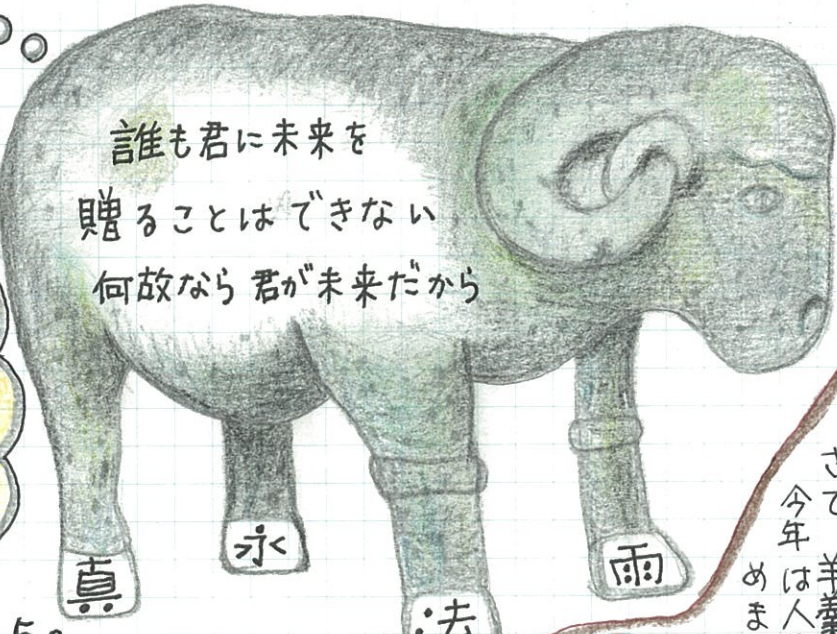 誰も君に未来を
贈ることはできない
何故なら 君が未来だから
真
永
法
雨
さて 羊
今年は人
めま